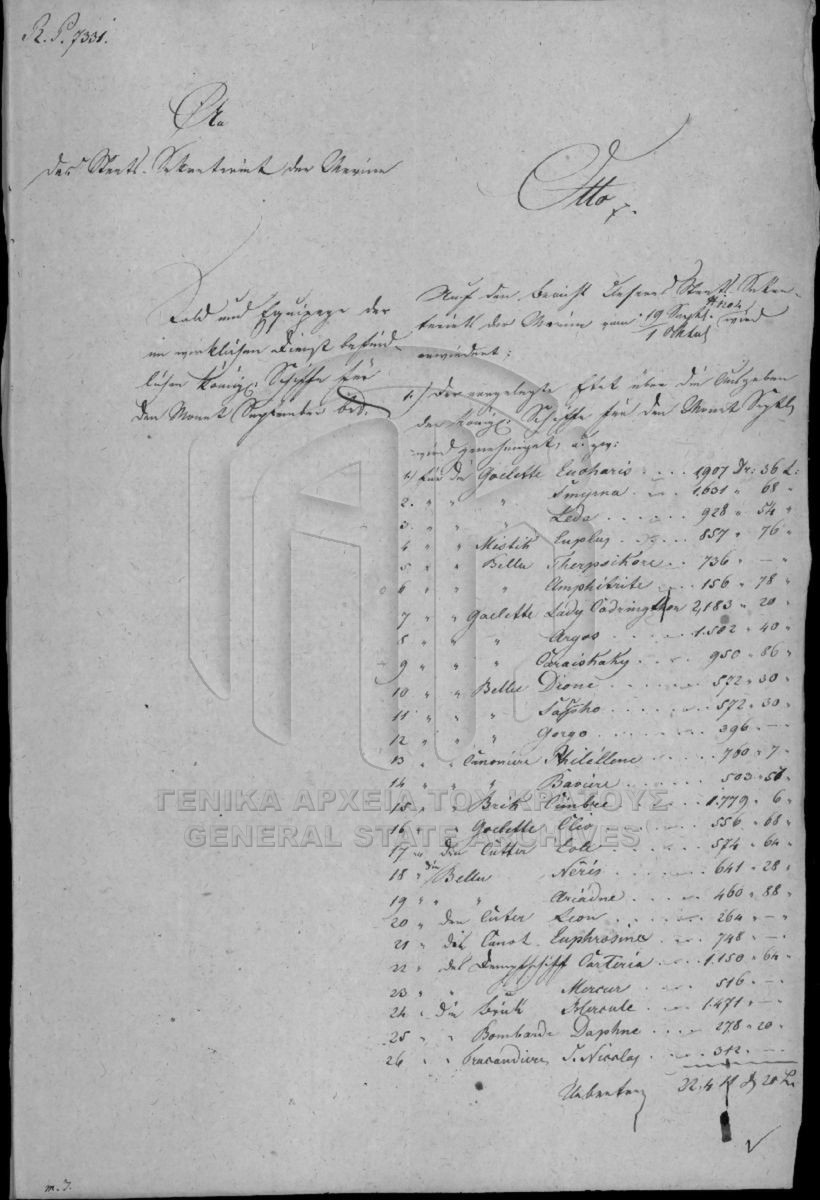 R. P. 7331.
An
das Staats-Sekretariat der Marine
Otto
Sold und Equipage der
im wirklichen Dienst befind-
lichen Königl. Schiffe für
den Monat September btd.
Auf den Bericht Unseres Staats-Sekre-
tariats der Marine vom 19 Septb. / 1 Oktob. wird
erwiedert:
1.) Der vorgelegte Etat über die Ausgaben
der Königl. Schiffe für den Monat Septb.
wird genehmiget, u. zw:
1.) für die Goelette Eucharis . . . 1,907 Dr: 36 L:
2. " " " Smyrna . . . 1.631 " 68 "
3. " " " Leda . . . 928 " 54 "
4 " " Mistik Euplus . . . 857 " 76 "
5 " " Bellu Therpsikore . . 736 " — "
6 " " " Amphitrite . . . 156 " 78 "
7 " " Goelette Lady Codrington 2,183 " 20 "
8 " " " Argos . . . 1.502 " 40 "
9 " " " Caraiskaky . . . 950 " 86 "
10 " " Bellu Dione . . . 572 " 30 "
11 " " " Sappho . . . 572 " 30 "
12 " " " Gorgo . . . 396 " —
13 " " Canoniere Philéllene . . . 780 " 7 "
14 " " " Baviere . . . 503 " 56 "
15 " " Brik Cimbre . . . 1.779 " 6 "
16 " " Goelette Clio . . . 556 " 68 "
17 " den Cutter Lole . . . 574 " 64 "
18 " die Bellu Néris . . . 641 " 28 "
19 " " " Ariadne . . . 460 " 88 "
20 " den Cuter Leon . . . 264 " — "
21 " das Canot Euphrosine . . . 748 " — "
22 " das Dampfschiff Carteria . . . 1.150 " 64 "
23 " " " Mercur . . . 516 " —
24 " die Brik Hercule . . . 1.471 " —
25 " " Bombarde Daphne . . . 278 " 20 "
26 " " S. Nicolas . . . 312 " —
Uebertrag
m. J.
ΓΕΝΙΚΑ ΑΡΧΕΙΑ ΤΟΥ ΚΡΑΤΟΥΣ
GENERAL STATE ARCHIVES